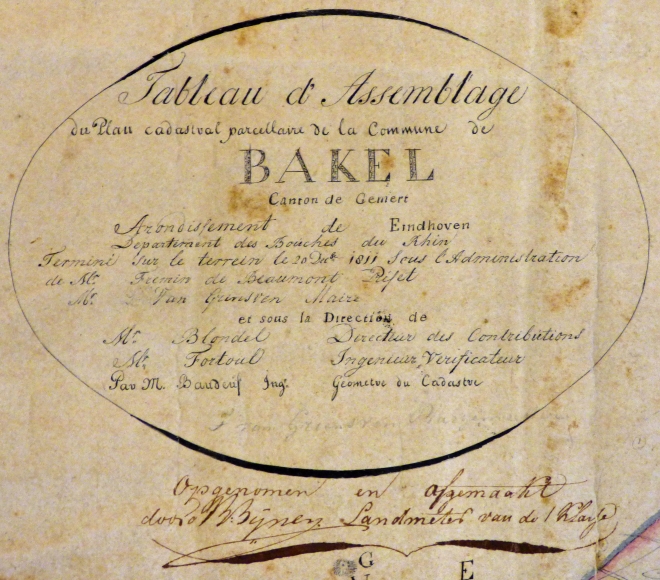 Tableau d'Assemblage
du Plan cadastral parcellaire de la Commune de
BAKEL
Canton de Gemert
Arondissement de Eindhoven
Departement des Bouches du Rhin
Terminé sur le terrein le 20 1811 sous l'Administration
de Mr. Fremin de Beaumont Préfet
Mr. Van Grinsven Maire
et sous la Direction de
Mr. Blondel Directeur des Contributions
Mr. Fortoul Ingenieur Verificateur
Par M. Bauduif Ingr. Géometre du Cadastre
Opgenomen en afgemaakt
door Bÿnen Landmeter van de 1 Klasse
G E